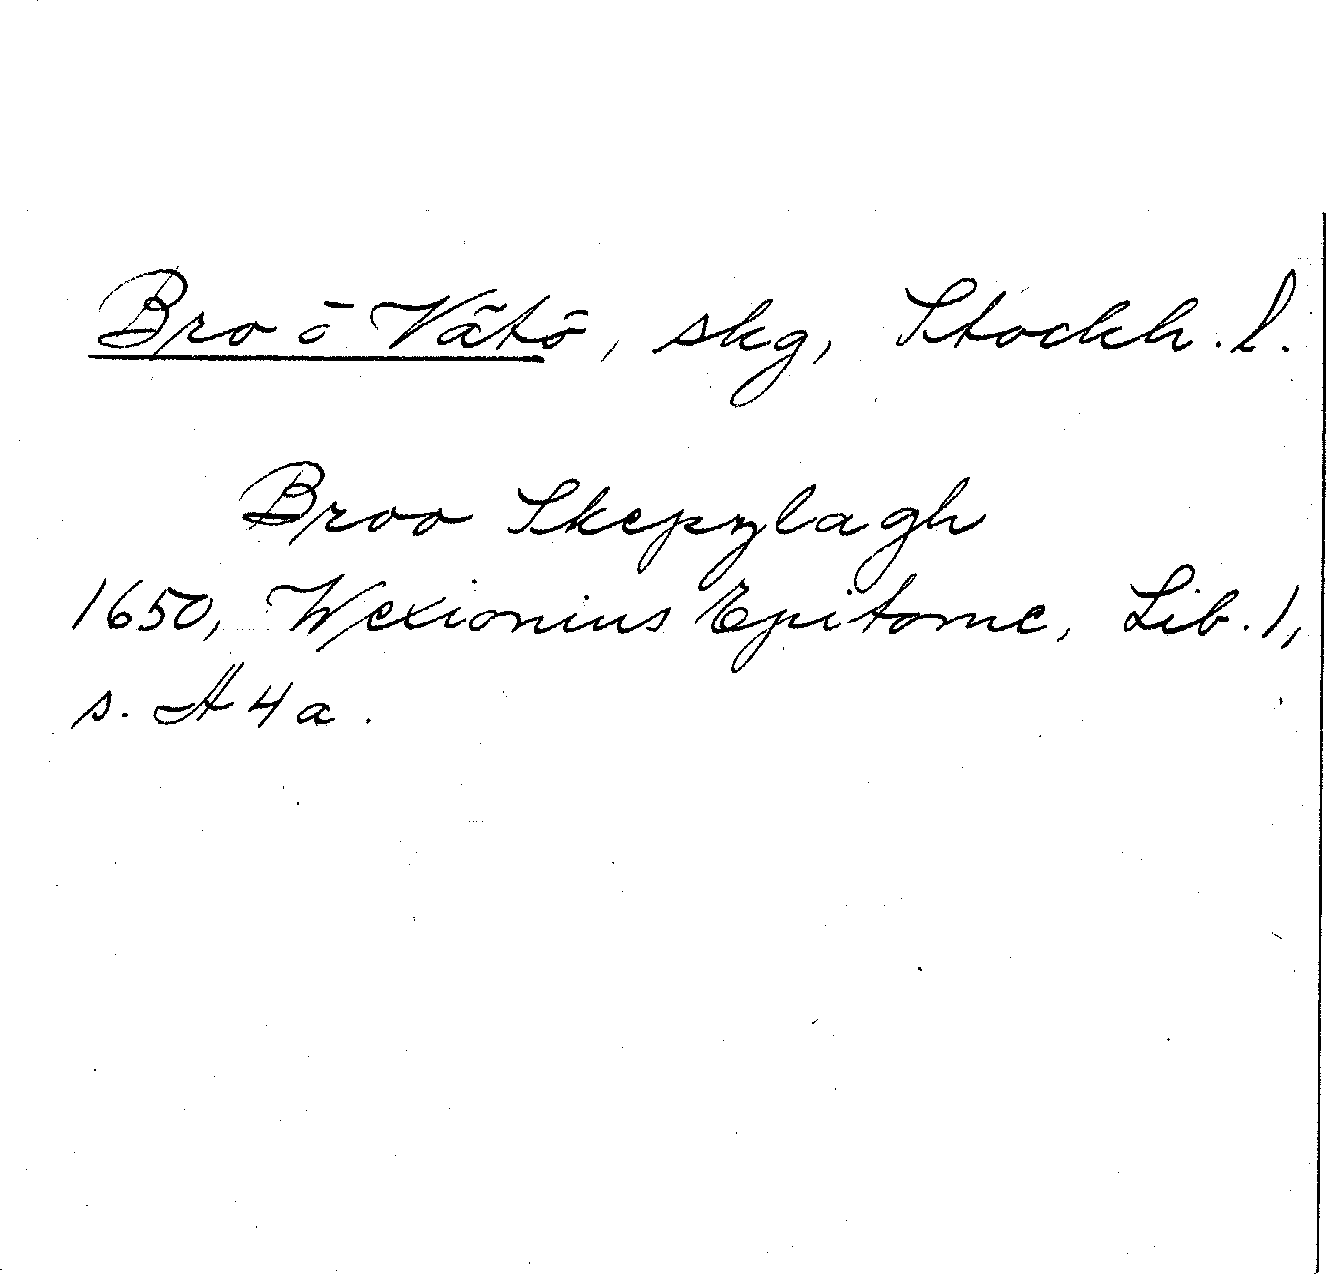 Bro o Vätö, skg, Stockh. l.
Broo Skepzlagh
1650, Wexionius Epitome, Lib. 1,
s. A 4 a.